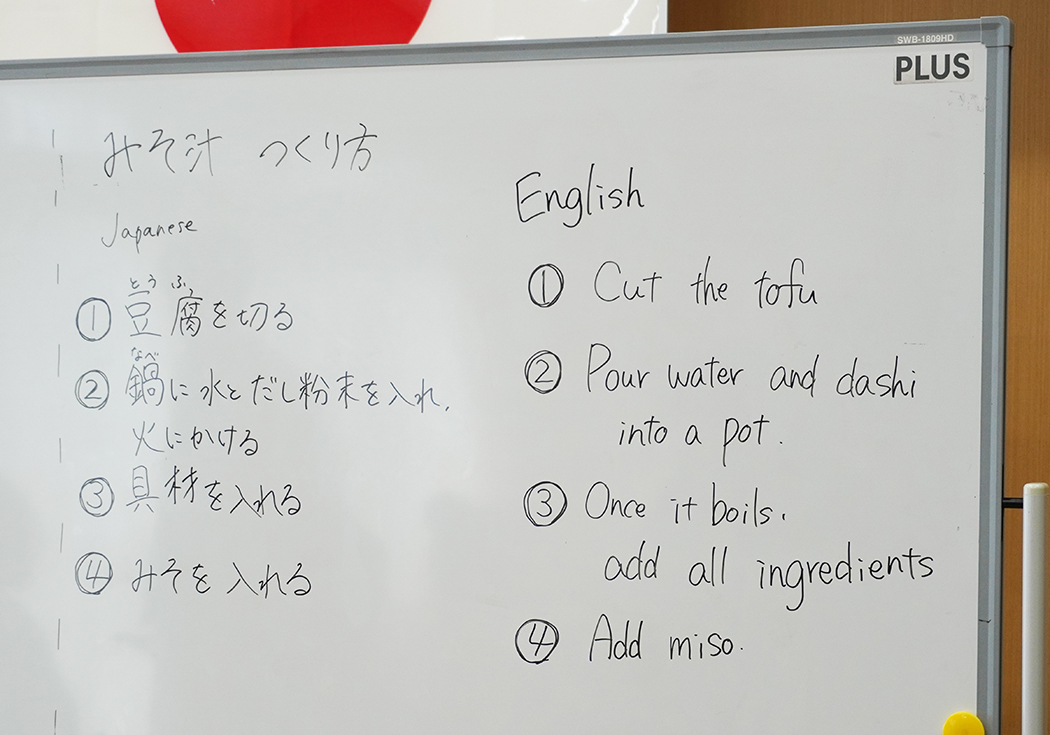 SWB-1809HD
PLUS
みそ汁 つくり方
Japanese
とう ふ
① 豆腐を切る
なべ
② 鍋に水とだし粉末を入れ、
火にかける
③ 具材を入れる
④ みそを入れる
English
① Cut the tofu
② Pour water and dashi
into a pot.
③ Once it boils,
add all ingredients
④ Add miso.